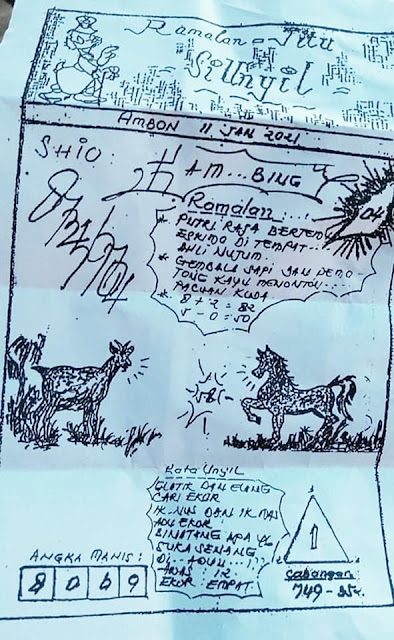 Ramalan - Jitu
Si Unyil
AMBON 11 JAN 2021
SHIO:
AM...BING
04
Ramalan:...
* PUTRI RAJA BERTEMU
ESKIMO DI TEMPAT...
AHLI NUJUM.
* GEMBALA SAPI DAN PEMO-
TONG KAYU MENONTON...
PACUAN KUDA
8 + 2 = 82
5 - 0 = 50
Kata Unyil
GLATIK DAN ELANG
CARI EKOR
IK-NUS DAN IK MAS
ADU EKOR
BINATANG APA YG
SUKA SENANG
DI ADUU...!
AWAS 12
EKOR : EMPAT
1
ANGKA MANIS:
8 0 6 9
Cabangan
749 -